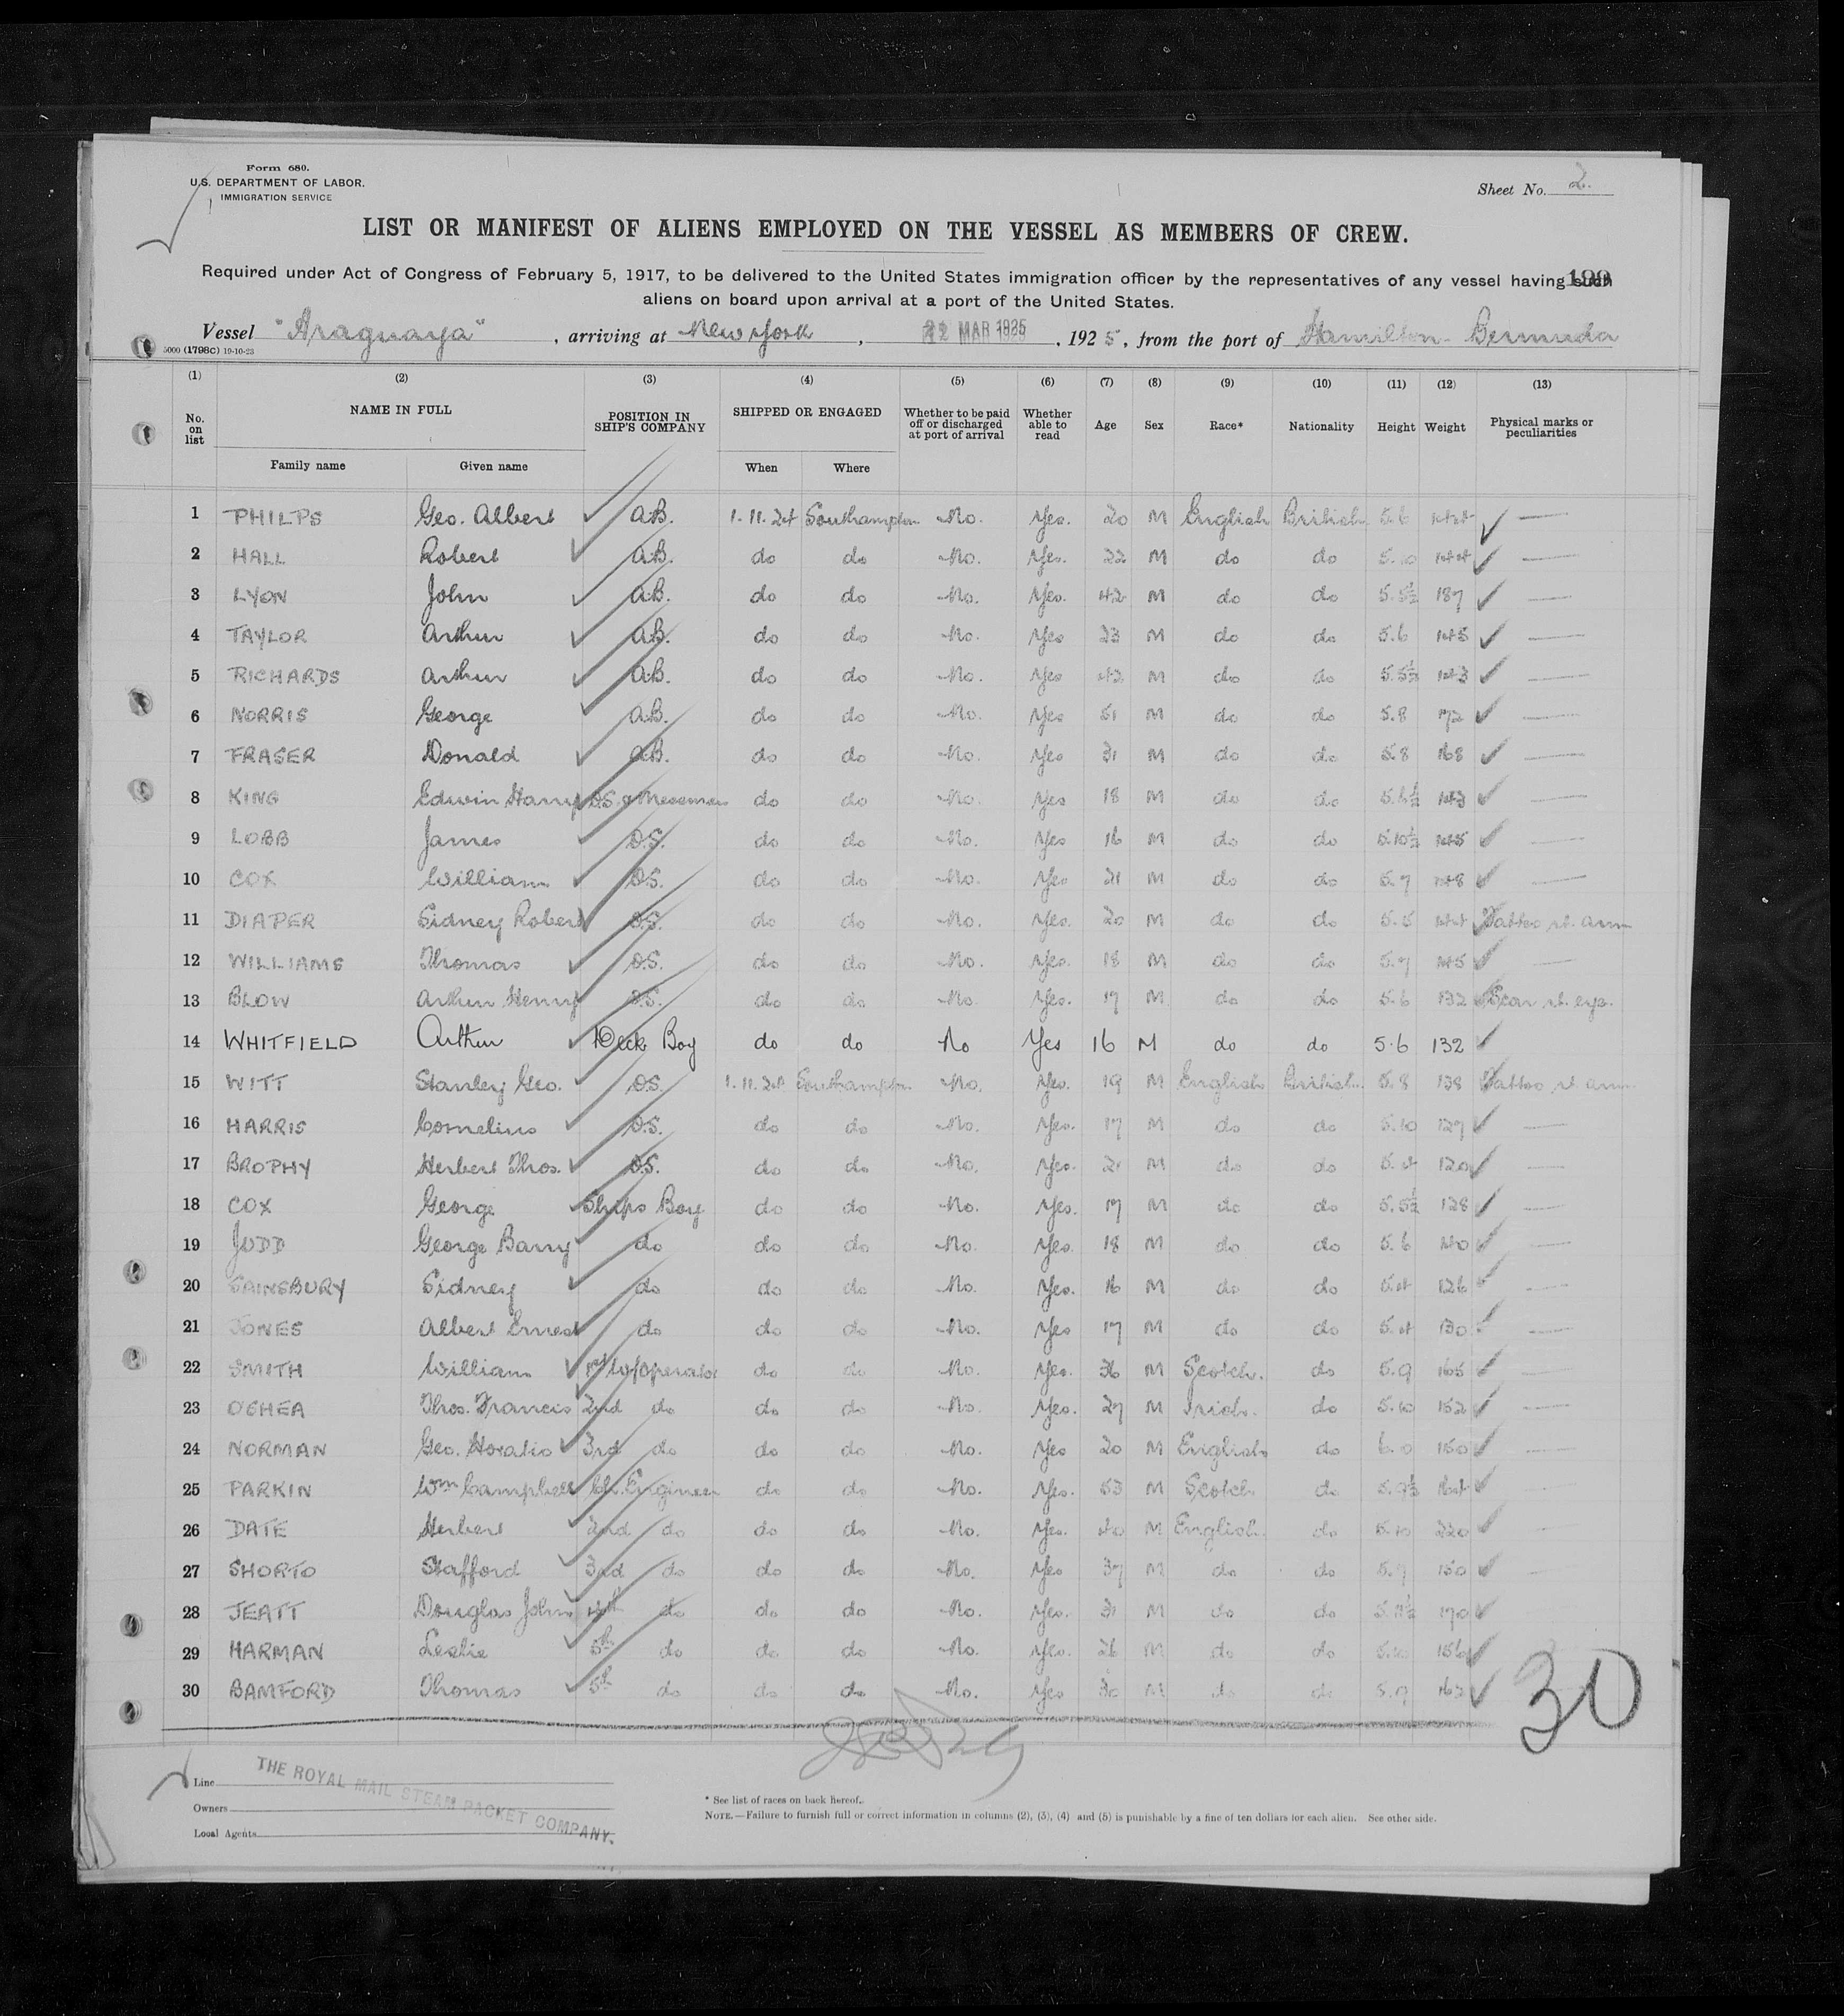 Form 680.
U.S. DEPARTMENT OF LABOR.
IMMIGRATION SERVICE
Sheet No. 2.
LIST OR MANIFEST OF ALIENS EMPLOYED ON THE VESSEL AS MEMBERS OF CREW.
Required under Act of Congress of February 5, 1917, to be delivered to the United States immigration officer by the representatives of any vessel having such
aliens on board upon arrival at a port of the United States.
Vessel "Araguaya", arriving at New York, 22 MAR 1925, 1925, from the port of Hamilton - Bermuda
5000 (1798C) 19-10-23
(1) (2) (3) (4) (5) (6) (7) (8) (9) (10) (11) (12) (13)
No. on list NAME IN FULL POSITION IN SHIP'S COMPANY SHIPPED OR ENGAGED Whether to be paid off or discharged at port of arrival Whether able to read Age Sex Race* Nationality Height Weight Physical marks or peculiarities
Family name Given name When Where
1 PHILPS Geo. Albert A.B. 1.11.24 Southampton No. Yes. 20 M English British 5.6 —
2 HALL Robert A.B. do do No. Yes. 22 M do do 5.10 144 —
3 LYON John A.B. do do No. Yes. 42 M do do 5.5½ 187 —
4 TAYLOR Arthur A.B. do do No. Yes 23 M do do 5.6 145 —
5 RICHARDS Arthur A.B. do do No. Yes 42 M do do 5.5½ 143 —
6 NORRIS George A.B. do do No. Yes 51 M do do 5.8 172 —
7 FRASER Donald A.B. do do No. Yes 31 M do do 5.8 168 —
8 KING Edwin Harry O.S. & Messman do do No. Yes 18 M do do 5.6½ 143 —
9 LOBB James O.S. do do No. Yes 16 M do do 5.10½ 145 —
10 COX William O.S. do do No. Yes 21 M do do 5.7 148 —
11 DIAPER Sidney Robert O.S. do do No. Yes. 20 M do do 5.5 144 Tattoo rt. arm
12 WILLIAMS Thomas O.S. do do No. Yes. 18 M do do 5.7 145 —
13 BLOW Arthur Henry O.S. do do No. Yes. 17 M do do 5.6 132 Scar rt. eye.
14 WHITFIELD Arthur Deck Boy do do No Yes 16 M do do 5.6 132
15 WITT Stanley Geo. O.S. 1.11.24 Southampton No. Yes. 19 M English British 5.8 138 Tattoo rt. arm
16 HARRIS Cornelius O.S. do do No. Yes. 17 M do do 5.10 127 —
17 BROPHY Herbert Thos. O.S. do do No. Yes. 21 M do do 5.4 120 —
18 COX George Ships Boy do do No. Yes. 17 M do do 5.5½ 128 —
19 JUDD George Barry do do do No. Yes. 18 M do do 5.6 140 —
20 SAINSBURY Sidney do do do No. Yes. 16 M do do 5.4 126 —
21 JONES Albert Ernest do do do No. Yes 17 M do do 5.4 130 —
22 SMITH William 1st W/Operator do do No. Yes. 36 M Scotch. do 5.9 165 —
23 O'SHEA Thos. Francis 2nd do do do No. Yes. 27 M Irish. do 5.10 152 —
24 NORMAN Geo. Horatio 3rd do do do No. Yes 20 M English do 6.0 150 —
25 PARKIN Wm Campbell Ch. Engineer do do No. Yes. 53 M Scotch do 164
26 DATE Herbert 2nd do do do No. Yes. 40 M English do 5.10 220
27 SHORTO Stafford 3rd do do do No. Yes 37 M do do 5.7 150
28 JEATT Douglas John 4th do do do No. Yes. 31 M do do 5.11½ 170
29 HARMAN Leslie 5th do do do No. Yes. 26 M do do 5.10 156
30 BAMFORD Thomas 5th do do do No. Yes 30 M do do 5.9 162
30
Line
THE ROYAL MAIL STEAM PACKET COMPANY.
Owners
Local Agents
* See list of races on back hereof.
NOTE.—Failure to furnish full or correct information in columns (2), (3), (4) and (5) is punishable by a fine of ten dollars for each alien. See other side.